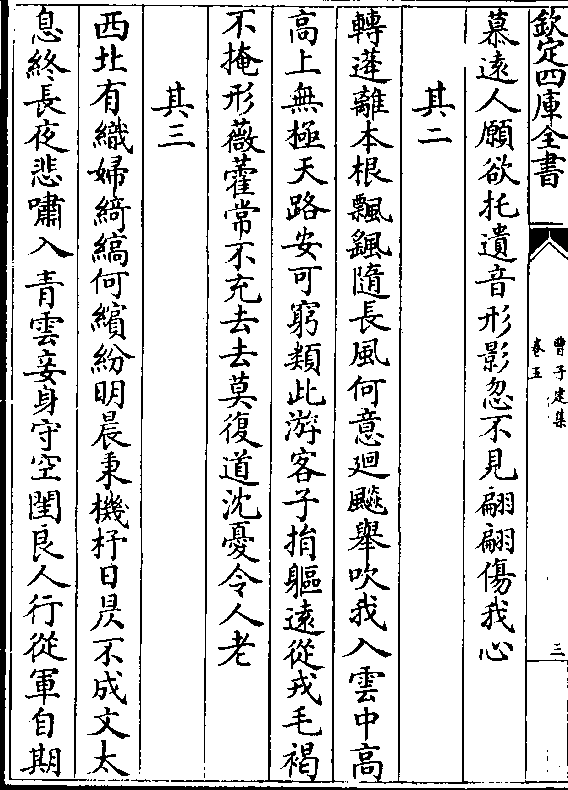 欽定四庫全書
曹子建集
卷五
三
慕逺人願欲托遺音形影忽不見翩翩傷我心
其二
轉蓬離本根飄颻隨長風何意廻飈舉吹我入雲中高
高上無極天路安可窮類此游客子捐軀逺從戎毛褐
不掩形薇藿常不充去去莫復道沈憂令人老
其三
西北有織婦綺縞何繽紛明晨秉機杼日昃不成文太
息終長夜悲嘯入青雲妾身守空閨良人行從軍自期